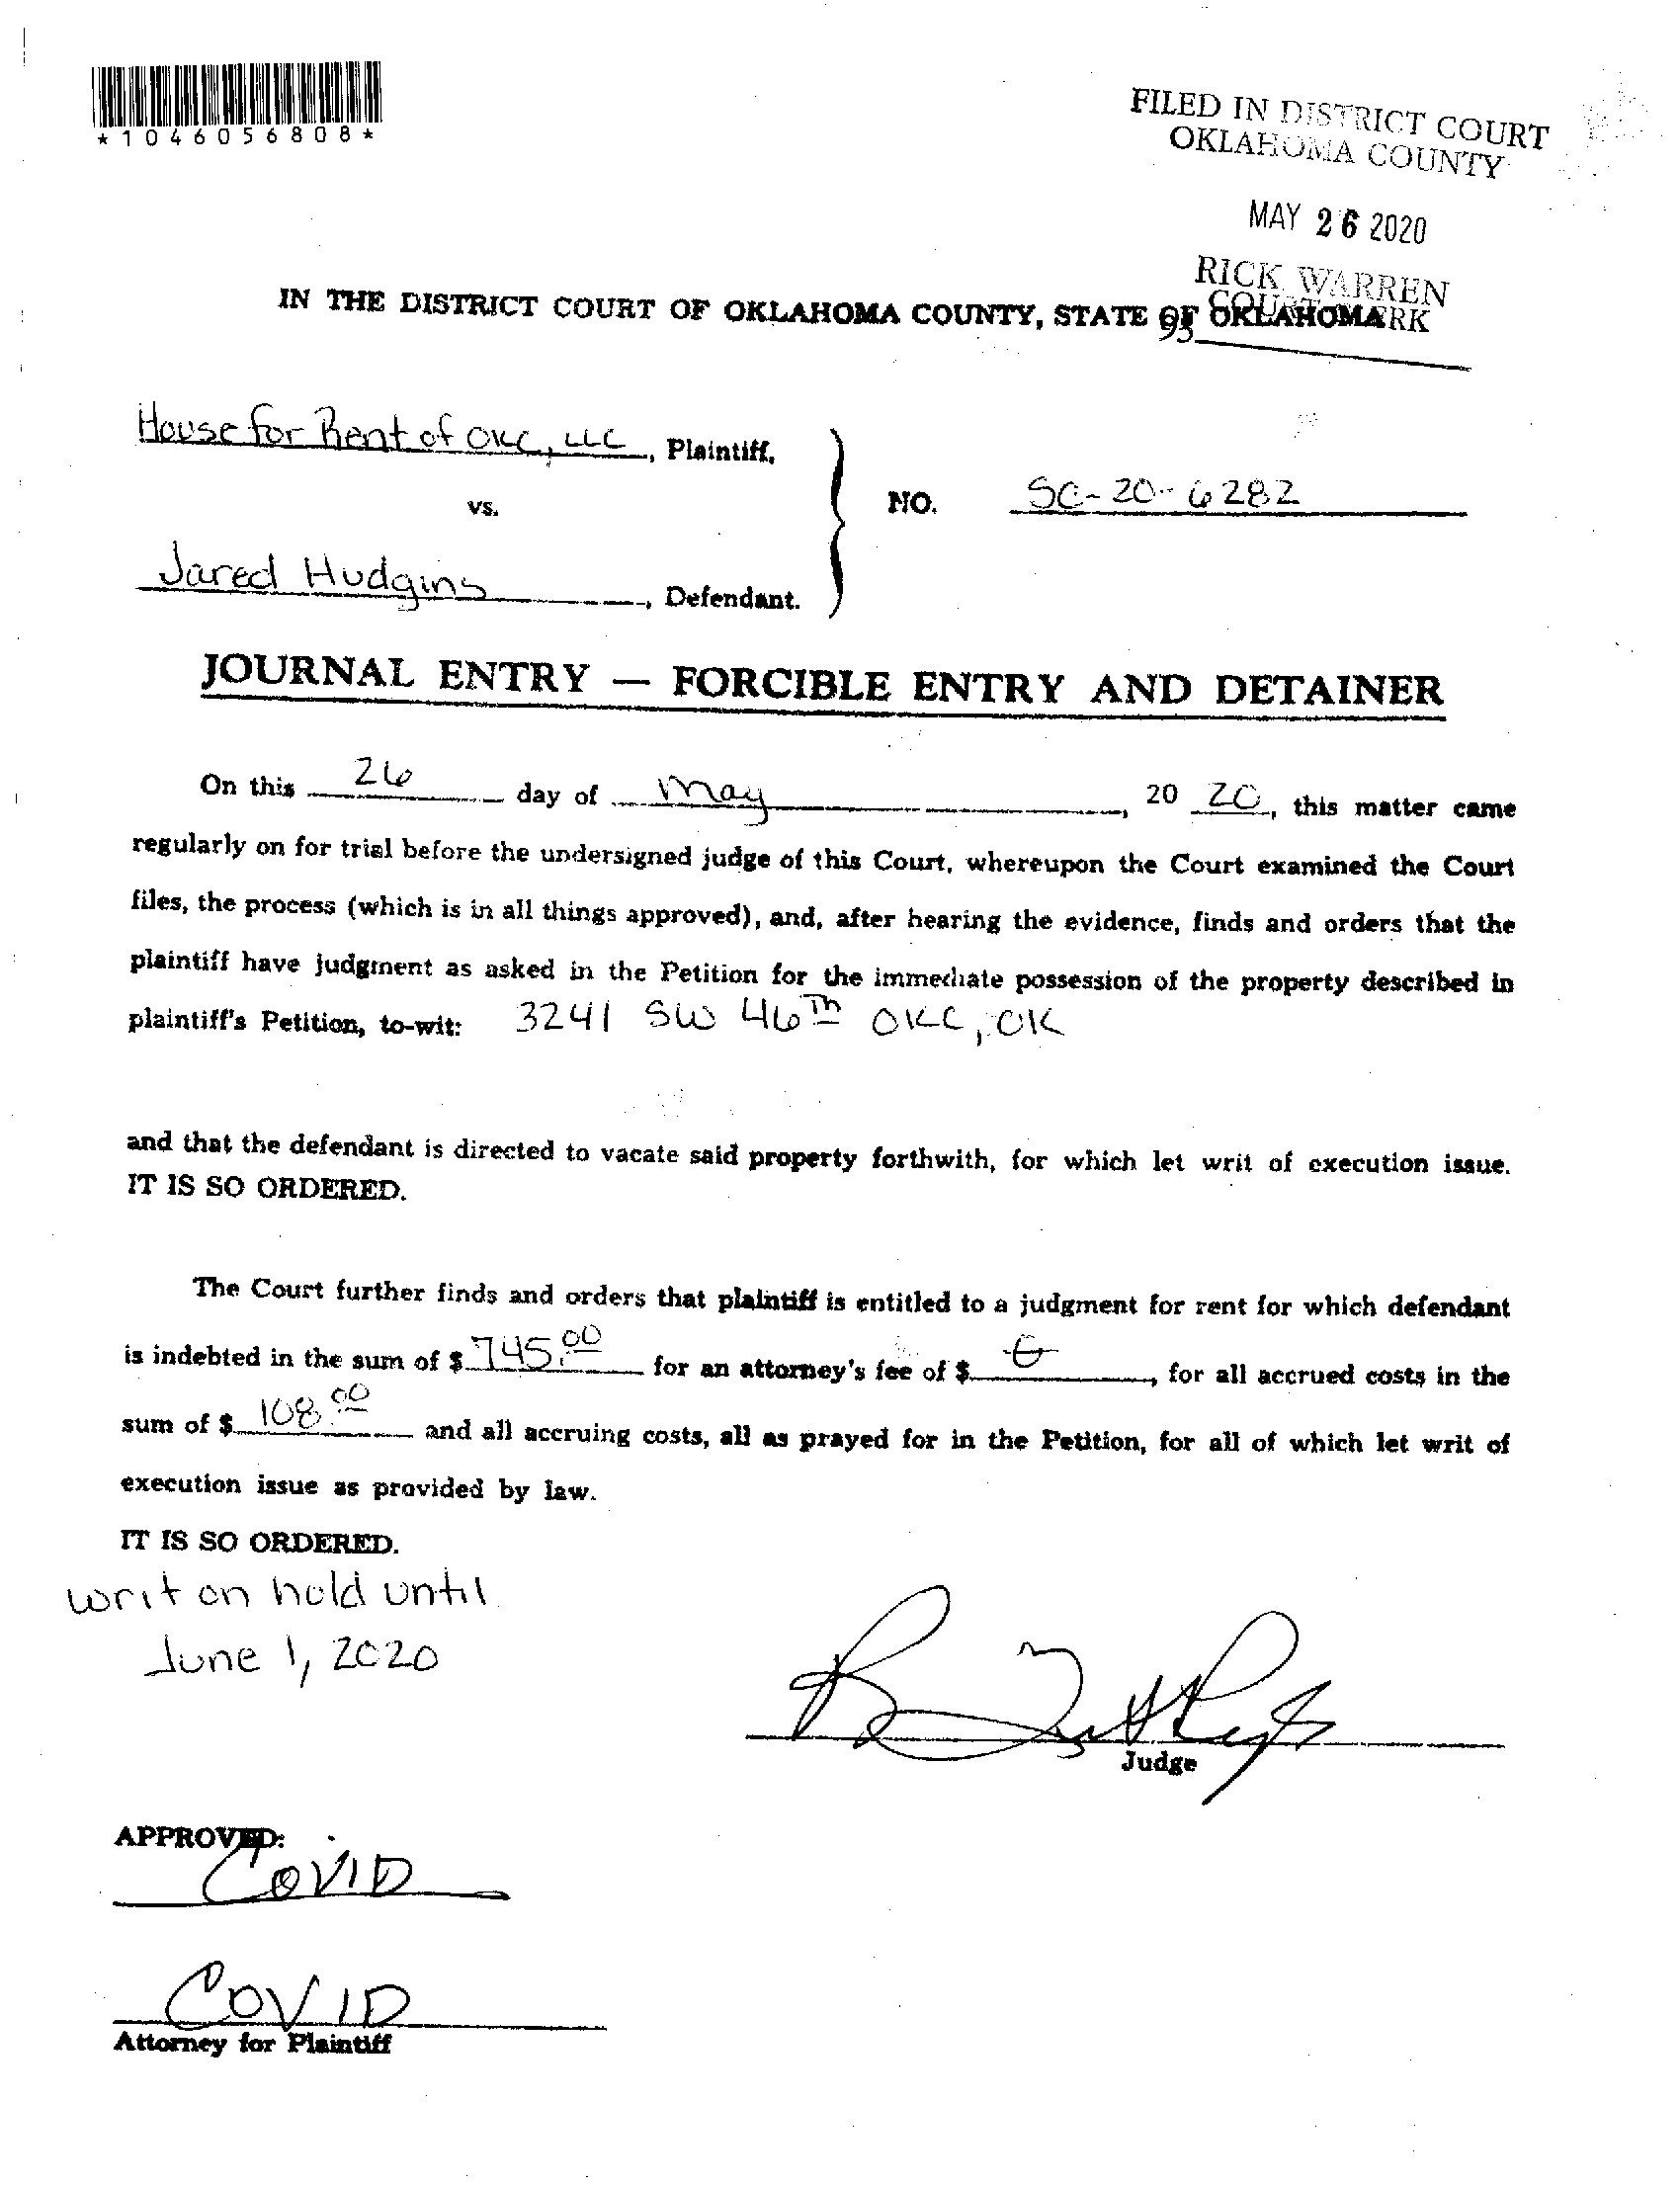 *1046056808*
FILED IN DISTRICT COURT
OKLAHOMA COUNTY
MAY 26 2020
RICK WARREN
COURT CLERK
93
IN THE DISTRICT COURT OF OKLAHOMA COUNTY, STATE OF OKLAHOMA
House for Rent of OKC, LLC, Plaintiff,
vs.
NO. SC-20-6282
Jared Hudgins, Defendant.
JOURNAL ENTRY — FORCIBLE ENTRY AND DETAINER
On this 26 day of May, 20 20, this matter came
regularly on for trial before the undersigned judge of this Court, whereupon the Court examined the Court
files, the process (which is in all things approved), and, after hearing the evidence, finds and orders that the
plaintiff have judgment as asked in the Petition for the immediate possession of the property described in
plaintiff's Petition, to-wit: 3241 SW 46th OKC, OK
and that the defendant is directed to vacate said property forthwith, for which let writ of execution issue.
IT IS SO ORDERED.
The Court further finds and orders that plaintiff is entitled to a judgment for rent for which defendant
is indebted in the sum of $ 745.00 for an attorney's fee of $ , for all accrued costs in the
sum of $ 108.00 and all accruing costs, all as prayed for in the Petition, for all of which let writ of
execution issue as provided by law.
IT IS SO ORDERED.
writ on hold until
June 1, 2020
Judge
APPROVED:
COVID
COVID
Attorney for Plaintiff